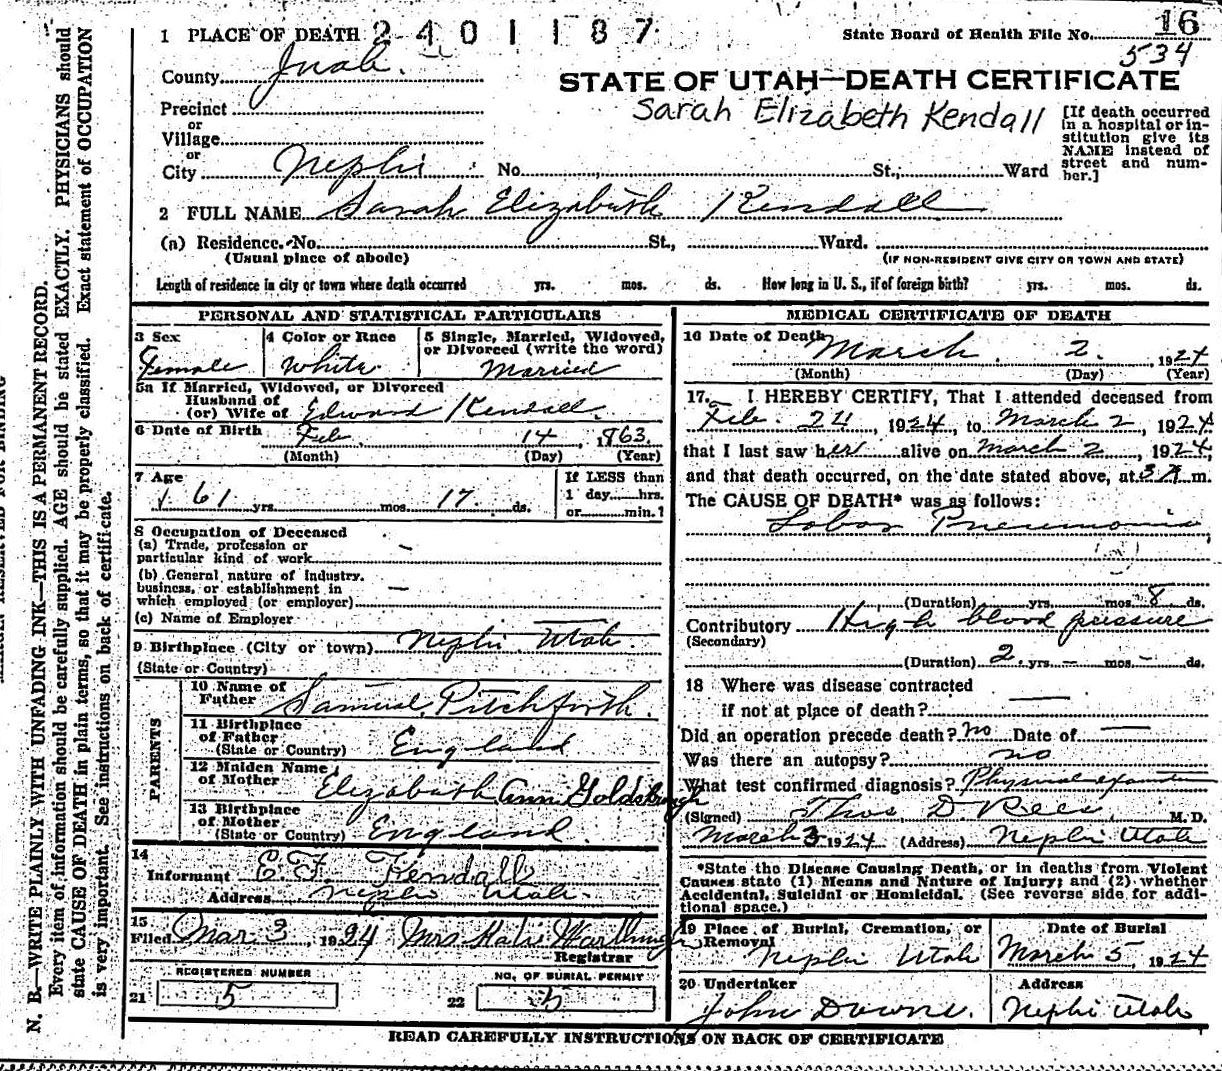 16
1 PLACE OF DEATH 2401187
State Board of Health File No.
534
County Juab.
STATE OF UTAH—DEATH CERTIFICATE
Precinct
Sarah Elizabeth Kendall
or
Village
or
City Nephi No. St.; Ward
[If death occurred
in a hospital or in-
stitution give its
NAME instead of
street and num-
ber.]
2 FULL NAME Sarah Elizabeth Kendall
(a) Residence. No. St., Ward.
(Usual place of abode) (IF NON-RESIDENT GIVE CITY OR TOWN AND STATE)
Length of residence in city or town where death occurred yrs. mos. ds. How long in U. S., if of foreign birth? yrs. mos. ds.
PERSONAL AND STATISTICAL PARTICULARS
3 Sex 4 Color or Race 5 Single, Married, Widowed,
or Divorced (write the word)
Female White Married
5a If Married, Widowed, or Divorced
Husband of
(or) Wife of Edward Kendall
6 Date of Birth Feb 14, 1863.
(Month) (Day) (Year)
7 Age If LESS than
61 yrs. mos. 17. ds. 1 day hrs.
or min.?
8 Occupation of Deceased
(a) Trade, profession or
particular kind of work —
(b) General nature of industry,
business, or establishment in
which employed (or employer) —
(c) Name of Employer
9 Birthplace (City or town) Nephi Utah
(State or Country)
PARENTS
10 Name of
Father Samuel Pitchforth.
11 Birthplace
of Father
(State or Country) England
12 Maiden Name
of Mother Elizabeth Ann Goldsbrough
13 Birthplace
of Mother
(State or Country) England.
14
Informant E. F. Kendall
Address Nephi Utah.
15
Filed Mar 3, 1924 Mrs.
Registrar
REGISTERED NUMBER NO. OF BURIAL PERMIT
21 5 22 5
MEDICAL CERTIFICATE OF DEATH
16 Date of Death March 2. 1924
(Month) (Day) (Year)
17. I HEREBY CERTIFY, That I attended deceased from
Feb. 24, 1924, to March 2, 1924
that I last saw her alive on March 2, 1924,
and that death occurred, on the date stated above, at 3 A m.
The CAUSE OF DEATH* was as follows:
Lobar Pneumonia
(Duration) yrs. mos. 8 ds.
Contributory High blood pressure
(Secondary)
(Duration) 2 yrs. — mos. — ds.
18 Where was disease contracted
if not at place of death?
Did an operation precede death? no Date of —
Was there an autopsy? no
What test confirmed diagnosis? Physical
(Signed) Thos D. Rees M. D.
March 3 1924 (Address) Nephi Utah
*State the Disease Causing Death, or in deaths from Violent
Causes state (1) Means and Nature of Injury; and (2) whether
Accidental, Suicidal or Homicidal. (See reverse side for addi-
tional space.)
19 Place of Burial, Cremation, or Date of Burial
Removal
Nephi Utah March 5, 1924
20 Undertaker Address
John Nephi Utah
READ CAREFULLY INSTRUCTIONS ON BACK OF CERTIFICATE
N. B.—WRITE PLAINLY WITH UNFADING INK—THIS IS A PERMANENT RECORD.
Every item of information should be carefully supplied. AGE should be stated EXACTLY. PHYSICIANS should
state CAUSE OF DEATH in plain terms, so that it may be properly classified. Exact statement of OCCUPATION
is very important. See instructions on back of certificate.